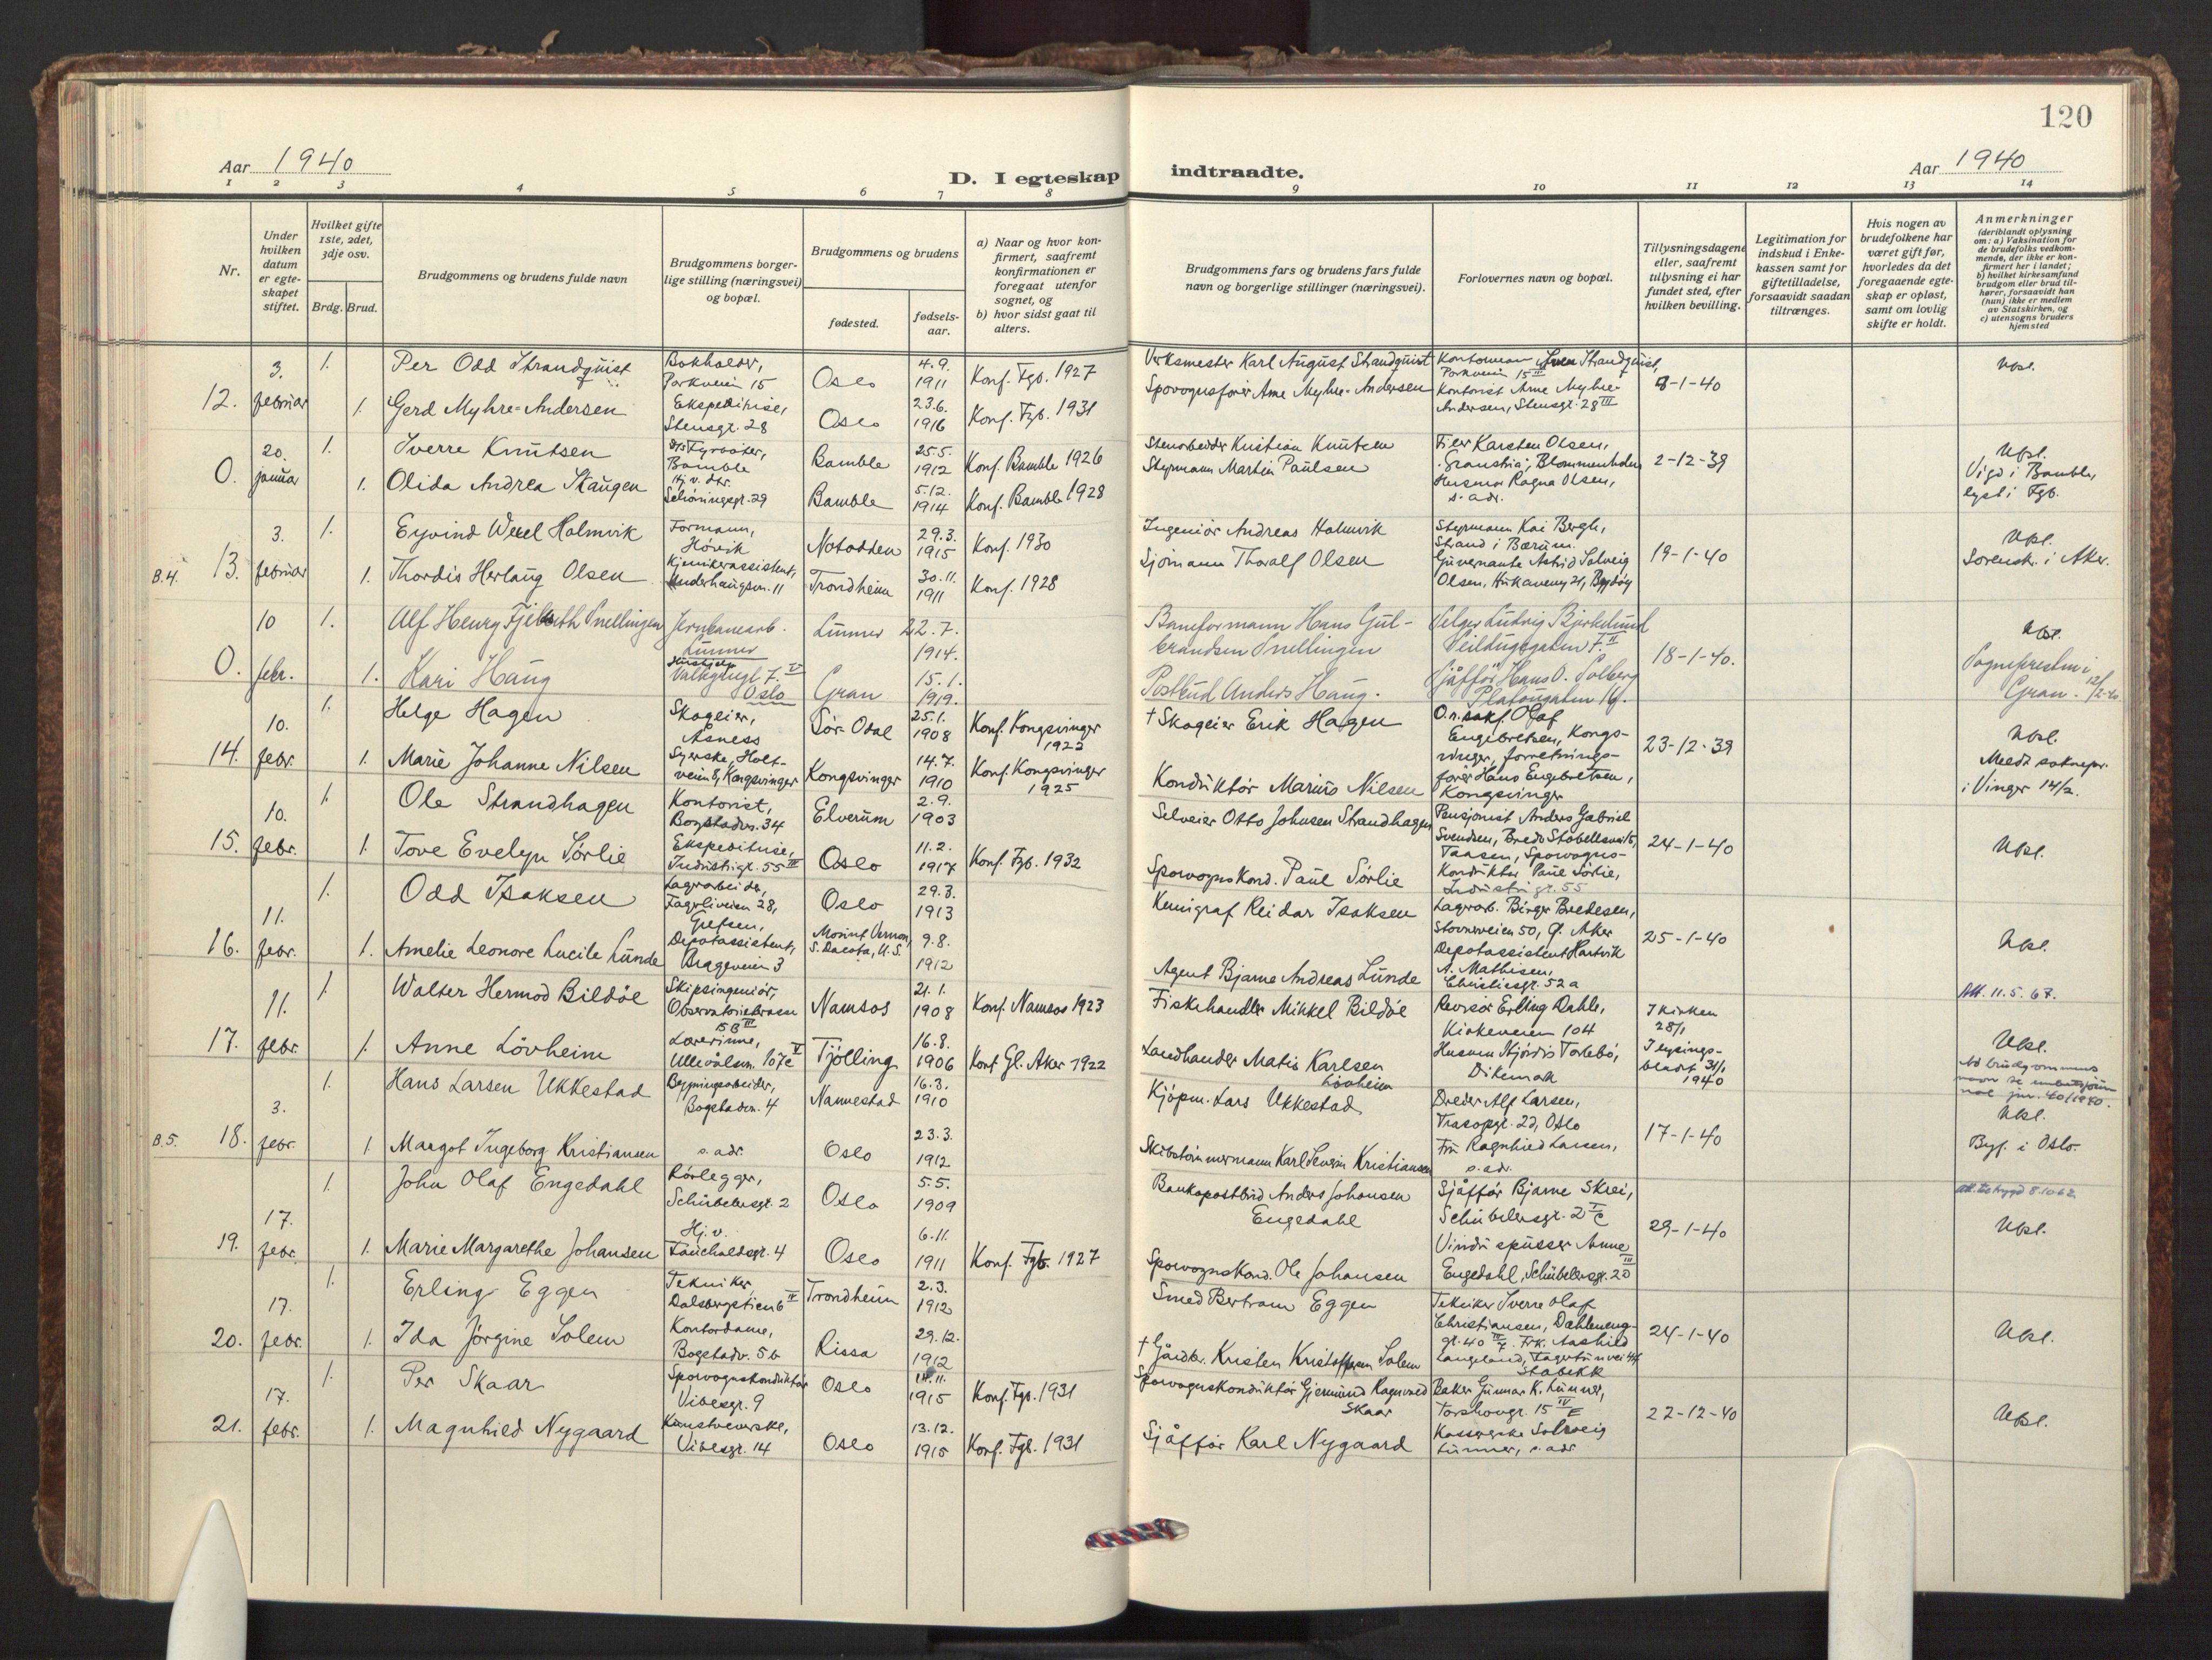 120
Aar 1940
D. I egteskap indtraadte.
Aar 1940
1 2 3 4 5 6 7 8 9 10 11 12 13 14
Nr.
Under hvilken datum er egteskapet stiftet.
Hvilket gifte 1ste, 2det, 3dje osv.
Brdg. Brud.
Brudgommens og brudens fulde navn
Brudgommens borgerlige stilling (næringsvei) og bopæl.
Brudgommens og brudens
fødested.
fødselsaar.
a) Naar og hvor konfirmert, saafremt konfirmationen er foregaat utenfor sognet, og
b) hvor sidst gaat til alters.
Brudgommens fars og brudens fars fulde navn og borgerlige stillinger (næringsvei).
Forlovernes navn og bopæl.
Tillysningsdagene eller, saafremt tillysning ei har fundet sted, efter hvilken bevilling.
Legitimation for indskud i Enkekassen samt for giftetilladelse, forsaavidt saadan tiltrænges.
Hvis nogen av brudefolkene har været gift før, hvorledes da det foregaaende egteskap er opløst, samt om lovlig skifte er holdt.
Anmerkninger
(deriblandt oplysning om: a) Vaksination for de brudefolks vedkommende, der ikke er konfirmert her i landet; b) hvilket kirkesamfund brudgom eller brud tilhører, forsaavidt han (hun) ikke er medlem av Statskirken, og c) utensogns bruders hjemsted
12. 3. februar
1. Per Odd Strandquist Bokholder, Parkveien 15 Oslo 4.9. 1911 Konf. Fgb. 1927
1. Gerd Myhre-Andersen Ekspeditrise, Stensgt. 28 Oslo 23.6. 1916 Konf. Fgb. 1931
Verksmester Karl August Strandquist
Sporvognsfører Arne Myhre-Andersen
Parkveien 15 III
Kontorist Arne Myhre-Andersen, Stensgt. 28 III
-1-40
Upl.
0. 20. januar
1. Sverre Knutsen Fyrbøter, Bamble Bamble 25.5. 1912 Konf. Bamble 1926
1. Olida Andrea Skaugen Schøningsgt. 29 Bamble 5.12. 1914 Konf. Bamble 1928
Stenarbeider Kristian Knutsen
Styrmann Martin Paulsen
Filer Karsten Olsen,
Blommenholm
Husmor Ragna Olsen,
s. adr.
2-12-39
Upl.
Vigd i Bamble,
lyst i Fgb.
B.4. 13. 3. februar
1. Eyvind Holmvik Formann, Høvik Notodden 29.3. 1915 Konf. 1930
1. Thordis Herlaug Olsen Kjemikerassistent, Trondheim 30.11. 1911 Konf. 1928
Ingeniør Andreas Holmvik
Sjømann Thoralf Olsen
Styrmann Kai Bergh,
Strand i Bærum.
Guvernante Astrid Solveig
Olsen, Hukaveny 21, Bygdøy
19-1-40
Upl.
Sorensk. i Aker.
0. 10 febr.
1. Alf Henry Snellingen Jernbanearb. Lunner Lunner 22.7. 1914.
1. Kari Haug Oslo Gran 15.1. 1919.
Baneformann Hans Gulbrandsen Snellingen
Postbud Anders Haug.
Selger Ludvig Bjørkelund
Seilduksgaten 7. II
Sjåffør Hans O. Solberg
Platougaten 16.
18-1-40.
Upl.
Sognepresten i
Gran. 12/2-40
14. 10. febr.
1. Helge Hagen Skogeier, Åsness Sør-Odal 25.1. 1908 Konf. Kongsvinger 1922
1. Marie Johanne Nilsen Syerske, Holtveien 8, Kongsvinger Kongsvinger 14.7. 1910 Konf. Kongsvinger 1925
† Skogeier Erik Hagen
Konduktør Marius Nilsen
O.r.sakf. Olaf
Engebretsen, Kongsvinger, forretningsfører Hans Engebretsen,
Kongsvinger
23-12-39
Upl.
Medt. soknepr.
i Vinger 14/2.
15. 10. febr.
1. Ole Strandhagen Kontorist, Bogstadvn. 34 Elverum 2.9. 1903
1. Tove Evelyn Sørlie Ekspeditrise, Industrigt. 55 III Oslo 11.2. 1917 Konf. Fgb. 1932
Selveier Otto Johnsen Strandhagen
Sporvognskond. Paul Sørlie
Pensjonist Anders Gabriel
Svendsen, Bredo Stabellsvei 15,
Taasen, Sporvognskonduktør Paul Sørlie,
Industrigt. 55
24-1-40
Upl.
16. 11. febr.
1. Odd Isaksen Lagerarbeider, Fagerliveien 28, Grefsen, Oslo 29.3. 1913
1. Amelie Leonore Lucile Lunde Depotassistent, Brageveien 3 Mount Vernon, S. Dacota, U.S. 9.8. 1912
Kemigraf Reidar Isaksen
Agent Bjarne Andreas Lunde
Lagerarb. Birger Bredesen,
Stovnerveien 50, Ø. Aker
Depotassistent Hartvik
A. Mathisen,
Christiesgt. 52 a
25-1-40
Upl.
17. 11. febr.
1. Walter Hermod Bildøe Skipsingeniør, Observatorieterrasse 15 B III Namsos 21.1. 1908 Konf. Namsos 1923
1. Anne Løvheim Lærerinne, Ullevålsvn. 107c V Tjølling 16.8. 1906 Konf. Gl. Aker 1922
Fiskehandler Mikkel Bildøe
Landhandler Matis Karlsen Løvheim
Revisor Erling Dahle,
Kirkeveien 104
Husmor Hjørdis Torlebo,
Dikemark
I kirken 28/1
I lysingsbladet 31/1 1940
Att. 11.5.67.
Upl.
B.5. 18. 3. febr.
1. Hans Larsen Ukkestad Bygningsarbeider, Bogstadvn. 4 Nannestad 16.3. 1910
1. Margot Ingeborg Kristiansen s. adr. Oslo 23.3. 1912
Kjøpm. Lars Ukkestad
Skibstømmermann Karl Severin Kristiansen
Dreier Alf Larsen,
Trasopgt. 22, Oslo
Fru Ragnhild Larsen,
s. adr.
17-1-40
Ad brudgommens
navn se
jnr. 40/1940.
Upl.
Byf. i Oslo.
19. 17. febr.
1. John Olaf Engedahl Rørlegger, Schübelersgt. 2 Oslo 5.5. 1909
1. Marie Margarethe Johansen Hj.v. Fauchaldsgt. 4 Oslo 6.11. 1911 Konf. Fgb. 1927
Bankopostbud Anders Johansen Engedahl
Sporvognskond. Ole Johansen
Sjåffør Bjarne Skrei,
Schübelersgt. 2
Vinduspusser Arne
Engedahl, Schübelersgt. 20 III
29-1-40
Upl.
20. 17. febr.
1. Erling Eggen Tekniker, Dalsbergstien 6 IV Trondheim 2.3. 1912
1. Ida Jørgine Solem Kontordame, Bogstadv. 56 Rissa 29.12. 1912
Smed Bertram Eggen
† Gårdbr. Kristen Kristoffersen Solem
Tekniker Sverre Olaf
Christiansen, Dæhlenenggt. 40 III, Frk. Aashild
Langeland, Fagertunvei 44
Stabekk
24-1-40
Upl.
21. 17. febr.
1. Per Skaar Sporvognskonduktør Vibesgt. 9 Oslo 14.11. 1915 Konf. Fgb. 1931
1. Magnhild Nygaard Kunstveverske, Vibesgt. 14 Oslo 13.12. 1915 Konf. Fgb. 1931
Sporvognskonduktør Gjermund Ragnvald Skaar
Sjåffør Karl Nygaard
Baker Gunnar K. Lunner,
Torshovgt. 15 IV E
Kasserske Solveig
Lunner, s. adr
22-12-40
Upl.